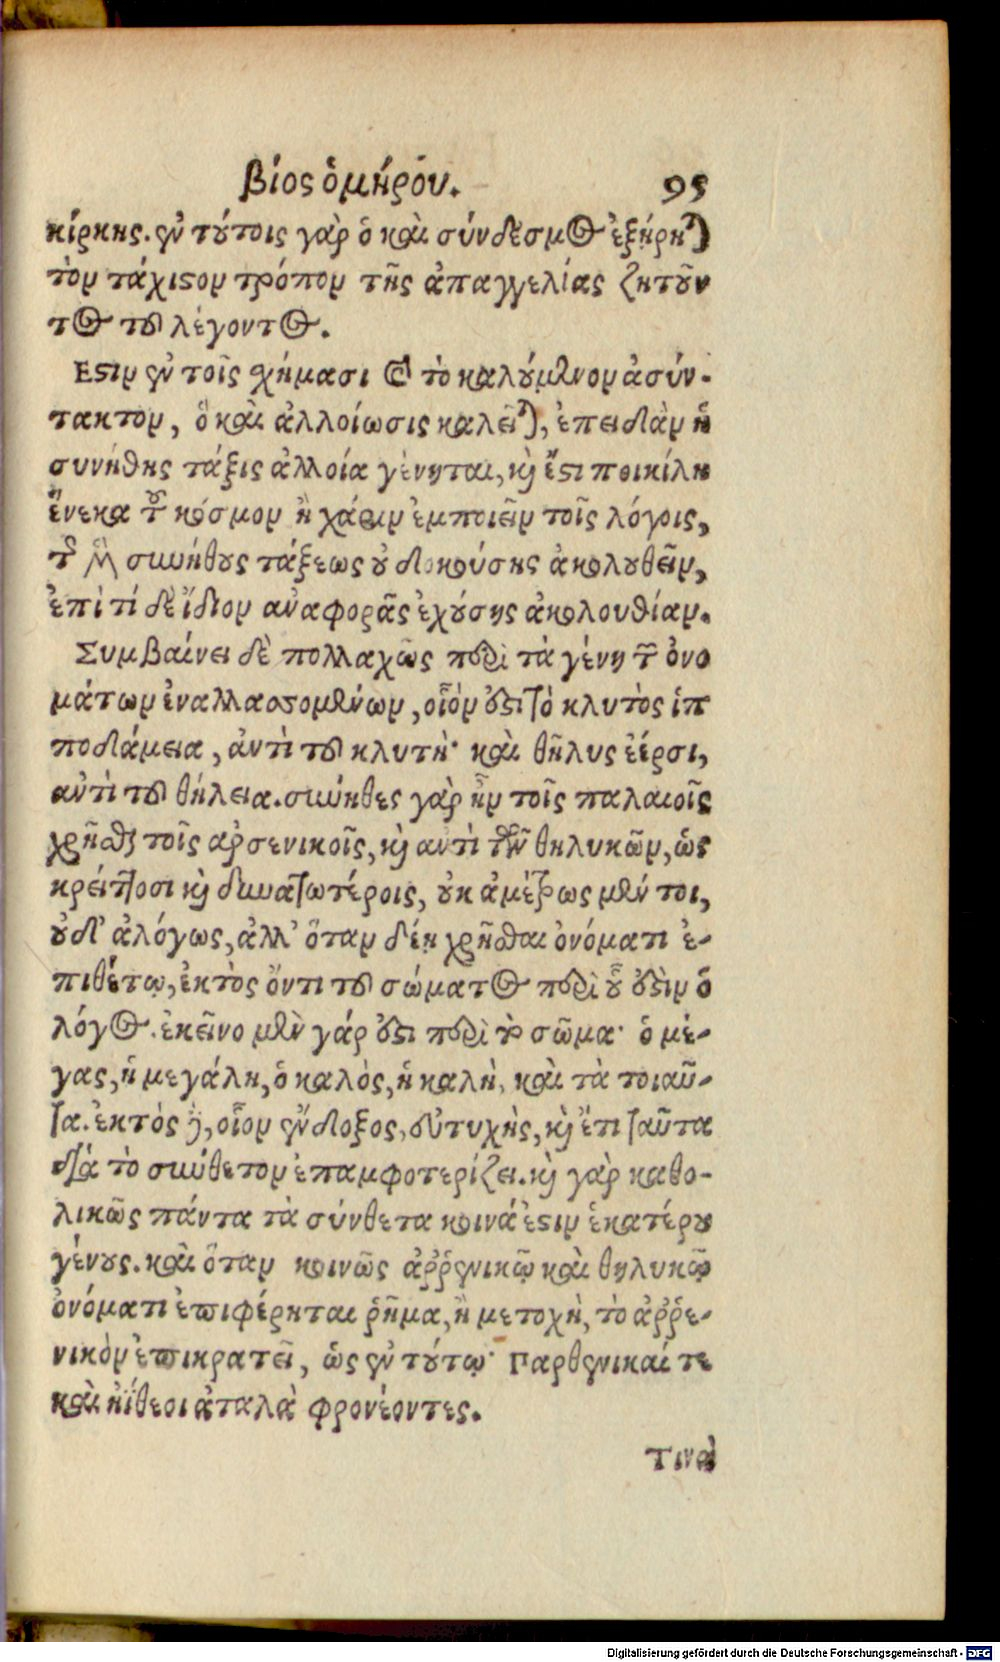 βίος ὁμήρου. 95
κίρκης. ἐν τούτοις γὰρ ὁ καὶ σύνδεσμος ἐξῄρηται
τὸν τάχιστον τρόπον τῆς ἀπαγγελίας ζητοῦν
τος τοῦ λέγοντος.
Εστιν ἐν τοῖς σχήμασι καὶ τὸ καλούμενον ἀσύν-
τακτον, ὃ καὶ ἀλλοίωσις καλεῖται, ἐπειδὰν ἡ
συνήθης τάξις ἀλλοία γένηται, καὶ ἔστι ποικίλη
ἕνεκα τοῦ κόσμον ἢ χάριν ἐμποιεῖν τοῖς λόγοις,
τῆς μὲν συνήθους τάξεως οὐ δοκούσης ἀκολουθεῖν,
ἐπὶ τί δὲ ἴδιον ἀναφορᾶς ἐχούσης ἀκολουθίαν.
Συμβαίνει δὲ πολλαχῶς περὶ τὰ γένη τῶν ὀνο
μάτων ἐναλλασσομένων, οἷόν ἐστι τὸ κλυτὸς ἱπ
ποδάμεια, ἀντὶ τοῦ κλυτή· καὶ θῆλυς ἐέρσι,
ἀντὶ τοῦ θήλεια. σύνηθες γὰρ ἦν τοῖς παλαιοῖς
χρῆσθαι τοῖς αρσενικοῖς, καὶ αντὶ τῶν θηλυκῶν, ὡς
κρείττοσι καὶ δυνατωτέροις, οὐκ ἀμέτρως μέν τοι,
οὐδ' ἀλόγως, ἀλλ' ὅταν δέῃ χρῆσθαι ὀνόματι ἐ-
πιθέτῳ, ἐκτὸς ὄντι τοῦ σώματος περὶ οὗ ἐστὶν ὁ
λόγος. ἐκεῖνο μὲν γάρ ἐστι περὶ τὸ σῶμα· ὁ μέ-
γας, ἡ μεγάλη, ὁ καλός, ἡ καλὴ, καὶ τὰ τοιαῦ-
τα. ἐκτός δὲ, οἷον ἔνδοξος, εὐτυχὴς, καὶ ἔτι ταῦτα
διὰ τὸ σύνθετον ἐπαμφοτερίζει. καὶ γὰρ καθο-
λικῶς πάντα τὰ σύνθετα κοινά ἐστιν ἑκατέρου
γένους. καὶ ὅταν κοινῶς ἀῤῥενικῷ καὶ θηλυκῷ
ὀνόματι ἐπιφέρηται ῥῆμα, ἢ μετοχὴ, τὸ ἀῤῥε-
νικὸν ἐπικρατεῖ, ὡς ἐν τούτῳ· Παρθενικαί τε
καὶ ἠΐθεοι ἀταλὰ φρονέοντες.
τινὰ
Digitalisierung gefördert durch die Deutsche Forschungsgemeinschaft - DFG